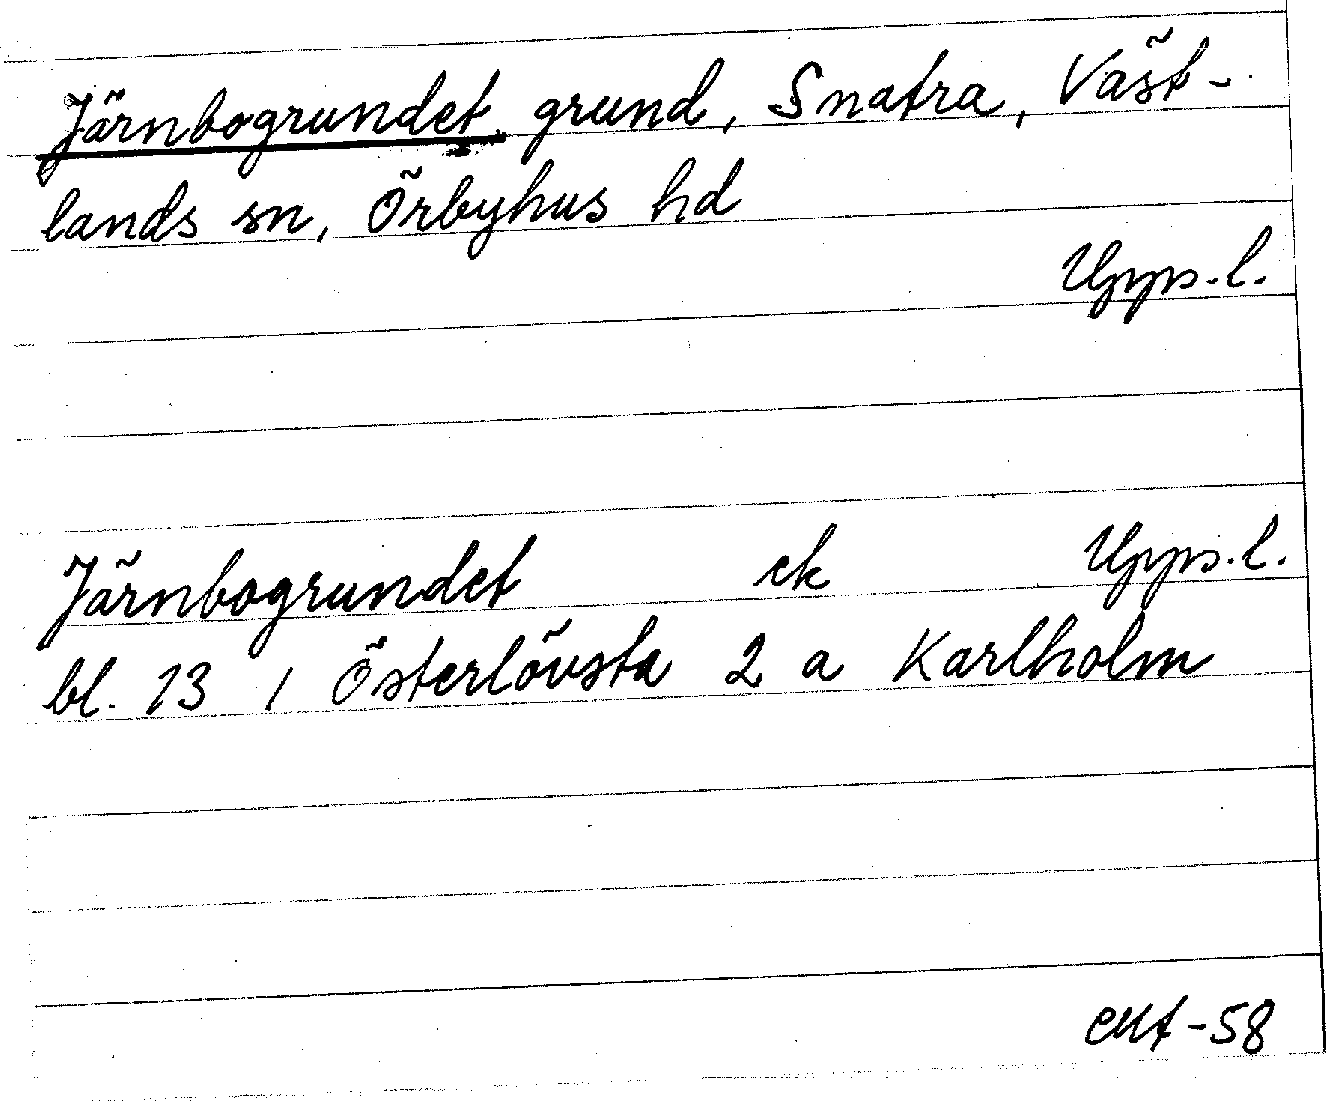 Järnbogrundet grund, Snatra, Väst-
lands sn, Örbyhus hd
Upps. l.
Järnbogrundet ek Upps. l.
bl. 13 / Österlövsta 2 a Karlholm
-58